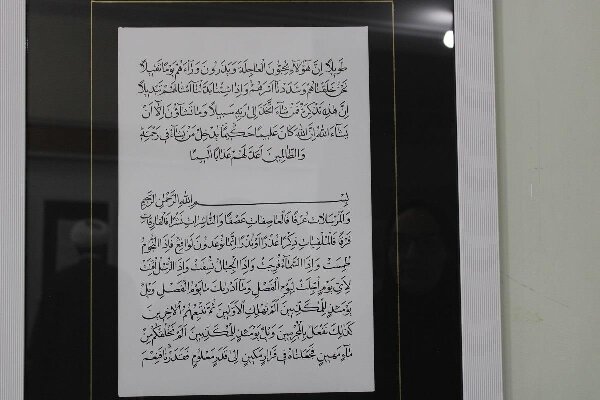 طَوِيلًا إِنَّ هَؤُلَاءِ يُحِبُّونَ الْعَاجِلَةَ وَيَذَرُونَ وَرَاءَهُمْ يَوْمًا ثَقِيلًا
نَحْنُ خَلَقْنَاهُمْ وَشَدَدْنَا أَسْرَهُمْ وَإِذَا شِئْنَا بَدَّلْنَا أَمْثَالَهُمْ تَبْدِيلًا
إِنَّ هَذِهِ تَذْكِرَةٌ فَمَنْ شَاءَ اتَّخَذَ إِلَى رَبِّهِ سَبِيلًا وَمَا تَشَاؤُنَ إِلَّا أَنْ
يَشَاءَ اللهُ إِنَّ اللهَ كَانَ عَلِيمًا حَكِيمًا يُدْخِلُ مَنْ يَشَاءُ فِي رَحْمَتِهِ
وَالظَّالِمِينَ أَعَدَّ لَهُمْ عَذَابًا أَلِيمًا
بِسْمِ اللهِ الرَّحْمَنِ الرَّحِيمِ
وَالْمُرْسَلَاتِ عُرْفًا فَالْعَاصِفَاتِ عَصْفًا وَالنَّاشِرَاتِ نَشْرًا فَالْفَارِقَاتِ
فَرْقًا فَالْمُلْقِيَاتِ ذِكْرًا عُذْرًا أَوْ نُذْرًا إِنَّمَا تُوعَدُونَ لَوَاقِعٌ فَإِذَا النُّجُومُ
طُمِسَتْ وَإِذَا السَّمَاءُ فُرِجَتْ وَإِذَا الْجِبَالُ نُسِفَتْ وَإِذَا الرُّسُلُ أُقِّتَتْ
لِأَيِّ يَوْمٍ أُجِّلَتْ لِيَوْمِ الْفَصْلِ وَمَا أَدْرَيكَ مَا يَوْمُ الْفَصْلِ وَيْلٌ
يَوْمَئِذٍ لِلْمُكَذِّبِينَ أَلَمْ نُهْلِكِ الْأَوَّلِينَ ثُمَّ نُتْبِعُهُمُ الْآخِرِينَ
كَذَلِكَ نَفْعَلُ بِالْمُجْرِمِينَ وَيْلٌ يَوْمَئِذٍ لِلْمُكَذِّبِينَ أَلَمْ نَخْلُقْكُمْ مِنْ
مَاءٍ مَهِينٍ فَجَعَلْنَاهُ فِي قَرَارٍ مَكِينٍ إِلَى قَدَرٍ مَعْلُومٍ فَقَدَرْنَا فَنِعْمَ